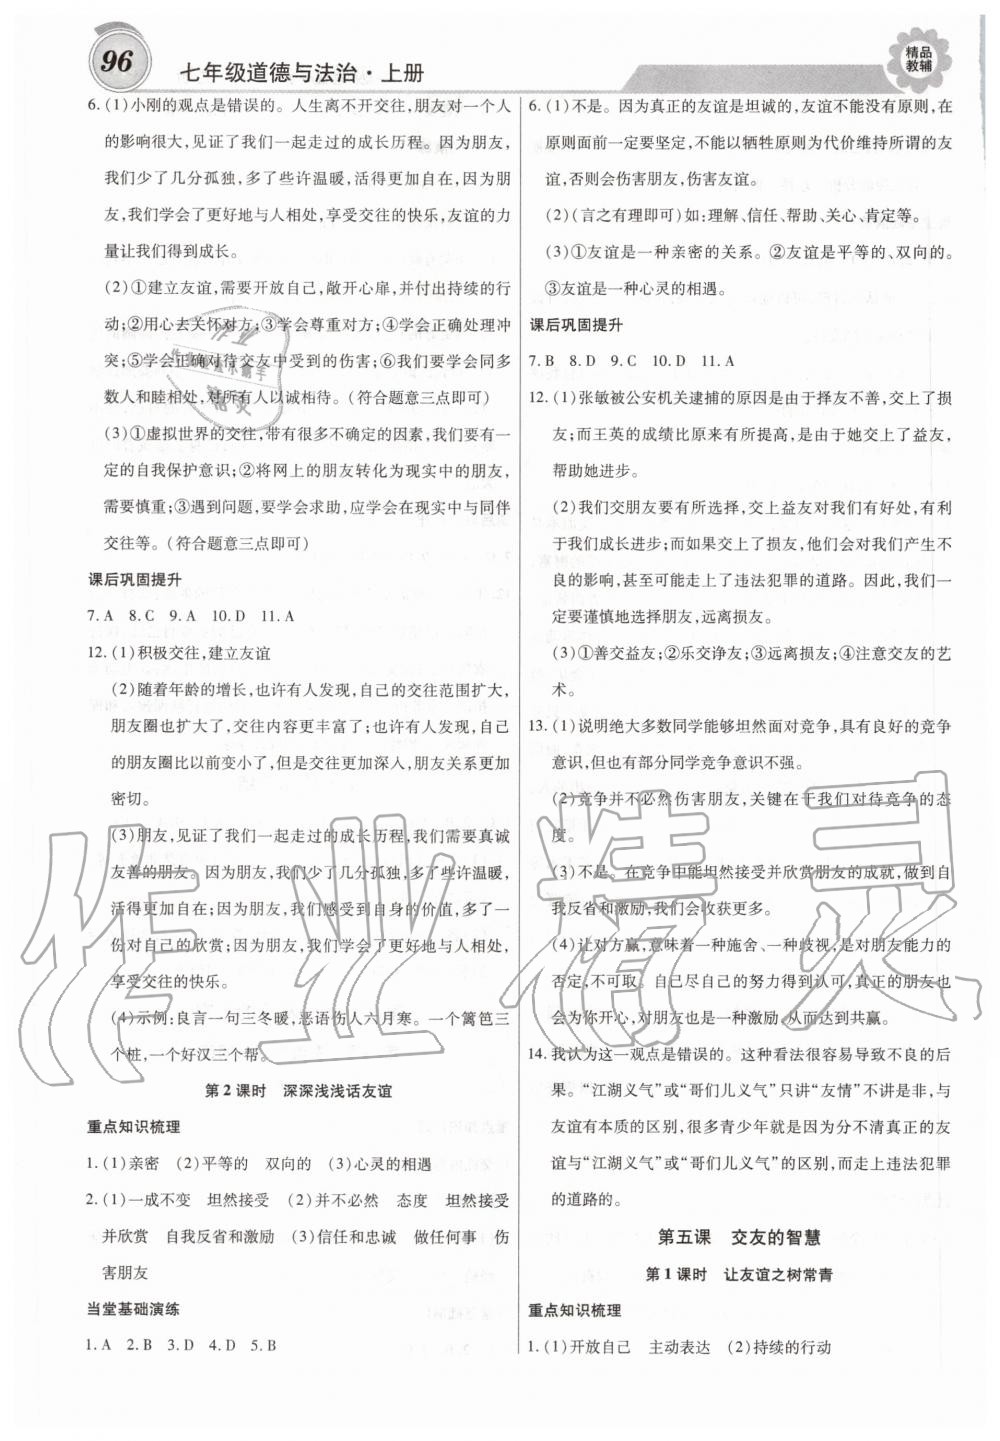 96
七年级道德与法治·上册
精品
教辅
6.(1)小刚的观点是错误的。人生离不开交往,朋友对一个人
的影响很大,朋友见证了我们一起走过的成长历程。因为朋友,
我们少了几分孤独,多了些许温暖,活得更加自在,因为朋
友,我们学会了更好地与人相处,享受交往的快乐,友谊的力
量让我们得到成长。
(2)①建立友谊,需要开放自己,敞开心扉,并付出持续的行
动;②用心去关怀对方;③学会尊重对方;④学会正确处理冲
突;⑤学会正确对待交友中受到的伤害;⑥我们要学会同多
数人和睦相处,对所有人以诚相待。(符合题意三点即可)
(3)①虚拟世界的交往,带有很多不确定的因素,我们要有一
定的自我保护意识;②将网上的朋友转化为现实中的朋友,
需要慎重;③遇到问题,要学会求助,应学会在现实中与同伴
交往等。(符合题意三点即可)
课后巩固提升
7.A 8.C 9.A 10.D 11.A
12.(1)积极交往,建立友谊
(2)随着年龄的增长,也许有人发现,自己的交往范围扩大,
朋友圈也扩大了,交往内容更丰富了;也许有人发现,自己
的朋友圈比以前变小了,但是交往更加深入,朋友关系更加
密切。
(3)朋友,见证了我们一起走过的成长历程,我们需要真诚
友善的朋友。因为朋友,我们少了几分孤独,多了些许温暖,
活得更加自在;因为朋友,我们感受到自身的价值,多了一
份对自己的欣赏;因为朋友,我们学会了更好地与人相处,
享受交往的快乐。
(4)示例:良言一句三冬暖,恶语伤人六月寒。一个篱笆三
个桩,一个好汉三个帮。
第2课时 深深浅浅话友谊
重点知识梳理
1.(1)亲密 (2)平等的 双向的 (3)心灵的相遇
2.(1)一成不变 坦然接受 (2)并不必然 态度 坦然接受
并欣赏 自我反省和激励 (3)信任和忠诚 做任何事 伤
害朋友
当堂基础演练
1.A 2.B 3.D 4.D 5.B
6.(1)不是。因为真正的友谊是坦诚的,友谊不能没有原则,在
原则面前一定要坚定,不能以牺牲原则为代价维持所谓的友
谊,否则会伤害朋友,伤害友谊。
(2)(言之有理即可)如:理解、信任、帮助、关心、肯定等。
(3)①友谊是一种亲密的关系。②友谊是平等的、双向的。
③友谊是一种心灵的相遇。
课后巩固提升
7.B 8.D 9.C 10.D 11.A
12.(1)张敏被公安机关逮捕的原因是由于择友不善,交上了损
友;而王英的成绩比原来有所提高,是由于她交上了益友,
帮助她进步。
(2)我们交朋友要有所选择,交上益友对我们有好处,有利
于我们成长进步;而如果交上了损友,会对我们产生不
良的影响,甚至可能走上了违法犯罪的道路。因此,我们一
定要谨慎地选择朋友,远离损友。
(3)①善交益友;②乐交诤友;③远离损友;④注意交友的艺
术。
13.(1)说明绝大多数同学能够坦然面对竞争,具有良好的竞争
意识,但也有部分同学竞争意识不强。
(2)竞争并不必然伤害朋友,关键在于我们对待竞争的态
度。
(3)不是。在竞争中能坦然接受并欣赏朋友的成就,做到自
我反省和激励,我们会收获更多。
(4)让对方赢,意味着一种施舍、一种歧视,是对朋友能力的
否定,不可取。自己尽自己的努力得到认可,真正的朋友也
会为你开心,对朋友也是一种激励,从而达到共赢。
14.我认为这一观点是错误的。这种看法很容易导致不良的后
果。“江湖义气”或“哥们儿义气”只讲“友情”不讲是非,与
友谊有本质的区别,很多青少年就是因为分不清真正的友
谊与“江湖义气”或“哥们儿义气”的区别,而走上违法犯罪
的道路的。
第五课 交友的智慧
第1课时 让友谊之树常青
重点知识梳理
1.(1)开放自己 主动表达 (2)持续的行动
作业精灵